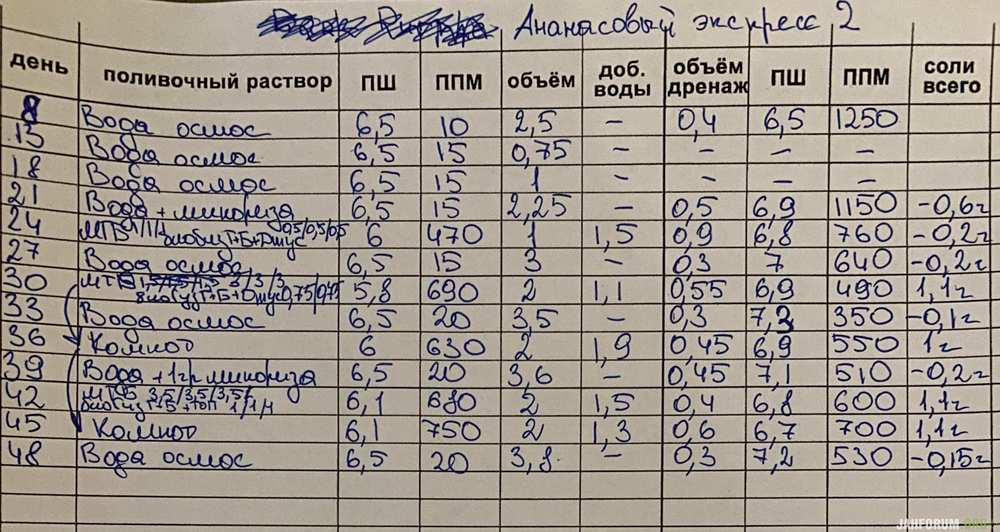 Ананасовый экспресс 2
день поливочный раствор ПШ ППМ объём доб. воды объём дренаж ПШ ППМ соли всего
8 Вода осмос 6,5 10 2,5 – 0,4 6,5 1250
15 Вода осмос 6,5 15 0,75 – – – –
18 Вода осмос 6,5 15 1 – – – –
21 Вода + микориза 6,5 15 2,25 – 0,5 6,9 1150 -0,6г
24 МТБ 1/1/1 0,5/0,5/0,5 6 470 1 1,5 0,9 6,8 760 -0,2г
27 Вода осмос 6,5 15 3 – 0,3 7 640 -0,2г
30 3/3/3 0,75/0,75 5,8 690 2 1,1 0,55 6,9 490 1,1г
33 Вода осмос 6,5 20 3,5 – 0,3 7,3 350 -0,1г
36 Компот 6 630 2 1,9 0,45 6,9 550 1г
39 Вода + 1гр микориза 6,5 20 3,6 – 0,45 7,1 510 -0,2г
42 МТБ 3,5/3,5/3,5 1/1/1 6,1 680 2 1,5 0,4 6,8 600 1,1г
45 Компот 6,1 750 2 1,3 0,6 6,7 700 1,1г
48 Вода осмос 6,5 20 3,8 – 0,3 7,2 530 -0,15г